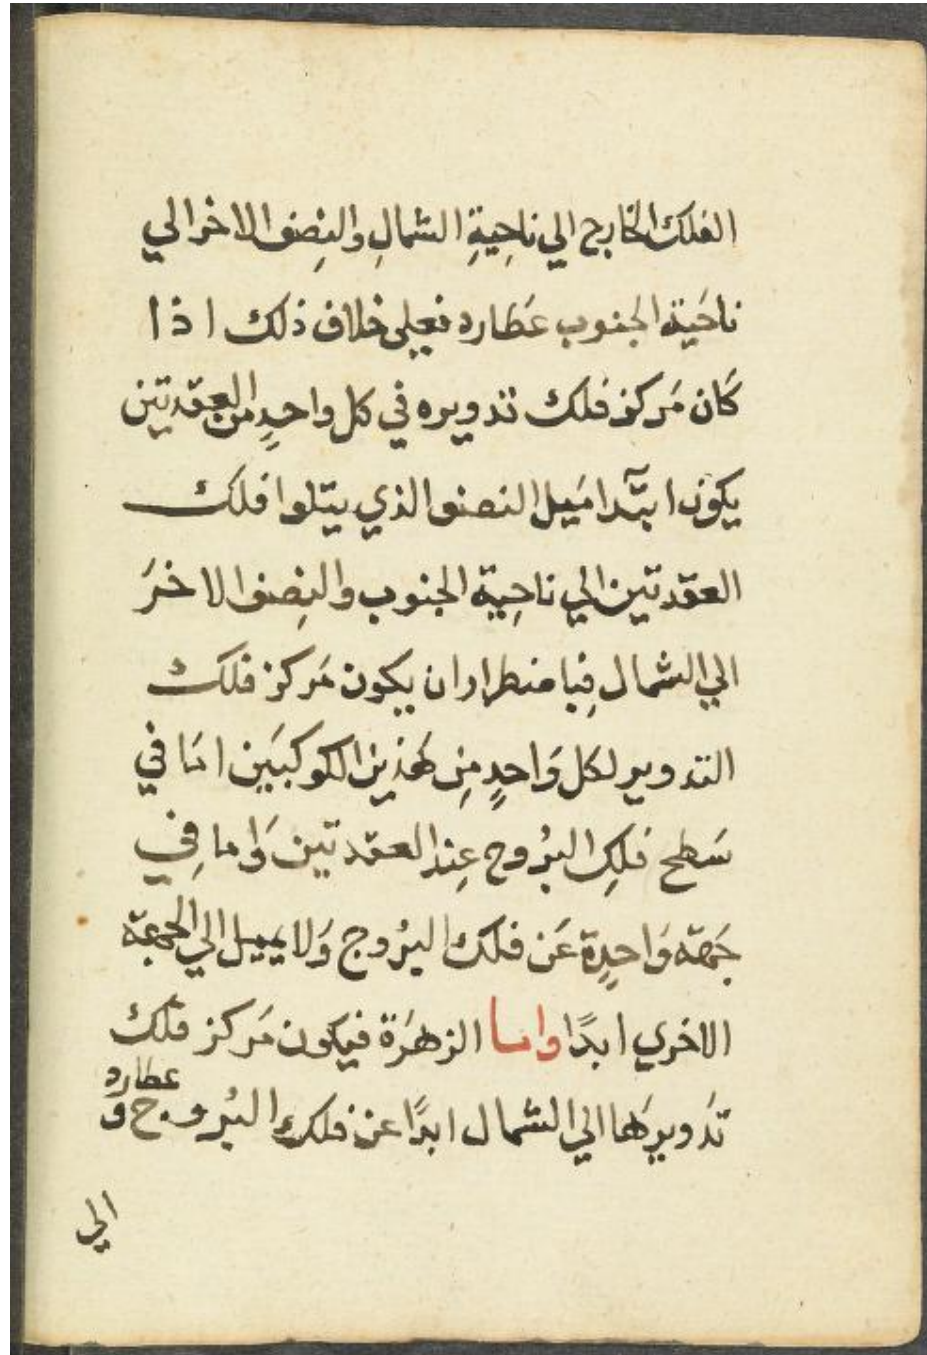 الفلك الخارج الي ناحِيةِ الشمالِ والنِصف الاخر الي
ناحَية الجنوب عَطارد فعلي خلاف ذلك اذا
كَان مَركز فلك تدويره في كل واحدٍ من العقدتين
يكون ابتدآ مَيل النصف الذي يتلوا فلك
العقدتين الي ناحِية الجنوب والنِصف الاخرَ
الي الشمال فِبا منطرار ان يكون مَركز فلك
التدوير لكل وَاحدٍ مِن هَذين الكوكبَين امَا في
سَطح فلكِ البرُوج عِند العقدتين وَاما فِي
جَهة وَاحدِة عَن فلك البرُوج وَلا يميل الي الجهة
الاخري ابدًا واما الزهرَة فيكون مَركز فلك
تدَويرهَا الي الشمال ابدًا عن فلك البرُوج وَ عطارد
الي